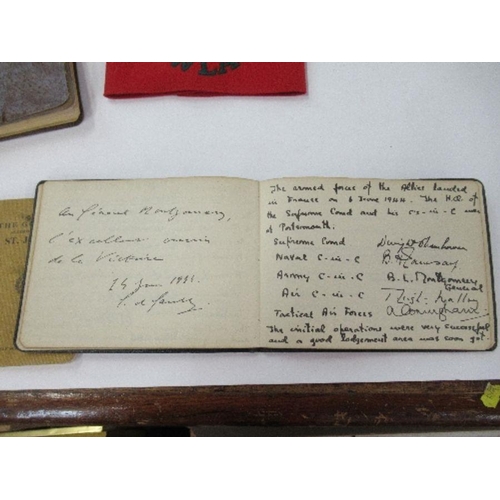 au Général Montgomery,
l'excellent ouvrier
de la Victoire
14 Juin 1944.
C. de Gaulle
The armed forces of the Allies landed
in France on 6 June 1944. The H.Q. of
the Supreme Comd and his Cs-in-C was
at Portsmouth.
Supreme Comd Dwight D Eisenhower
Naval C-in-C B H Ramsay
Army C-in-C B. L. Montgomery
General
Air C-in-C T Leigh-Mallory
Tactical Air Forces A Coningham
The initial operations were very successful
and a good lodgement area was soon got
THE G
ST. J